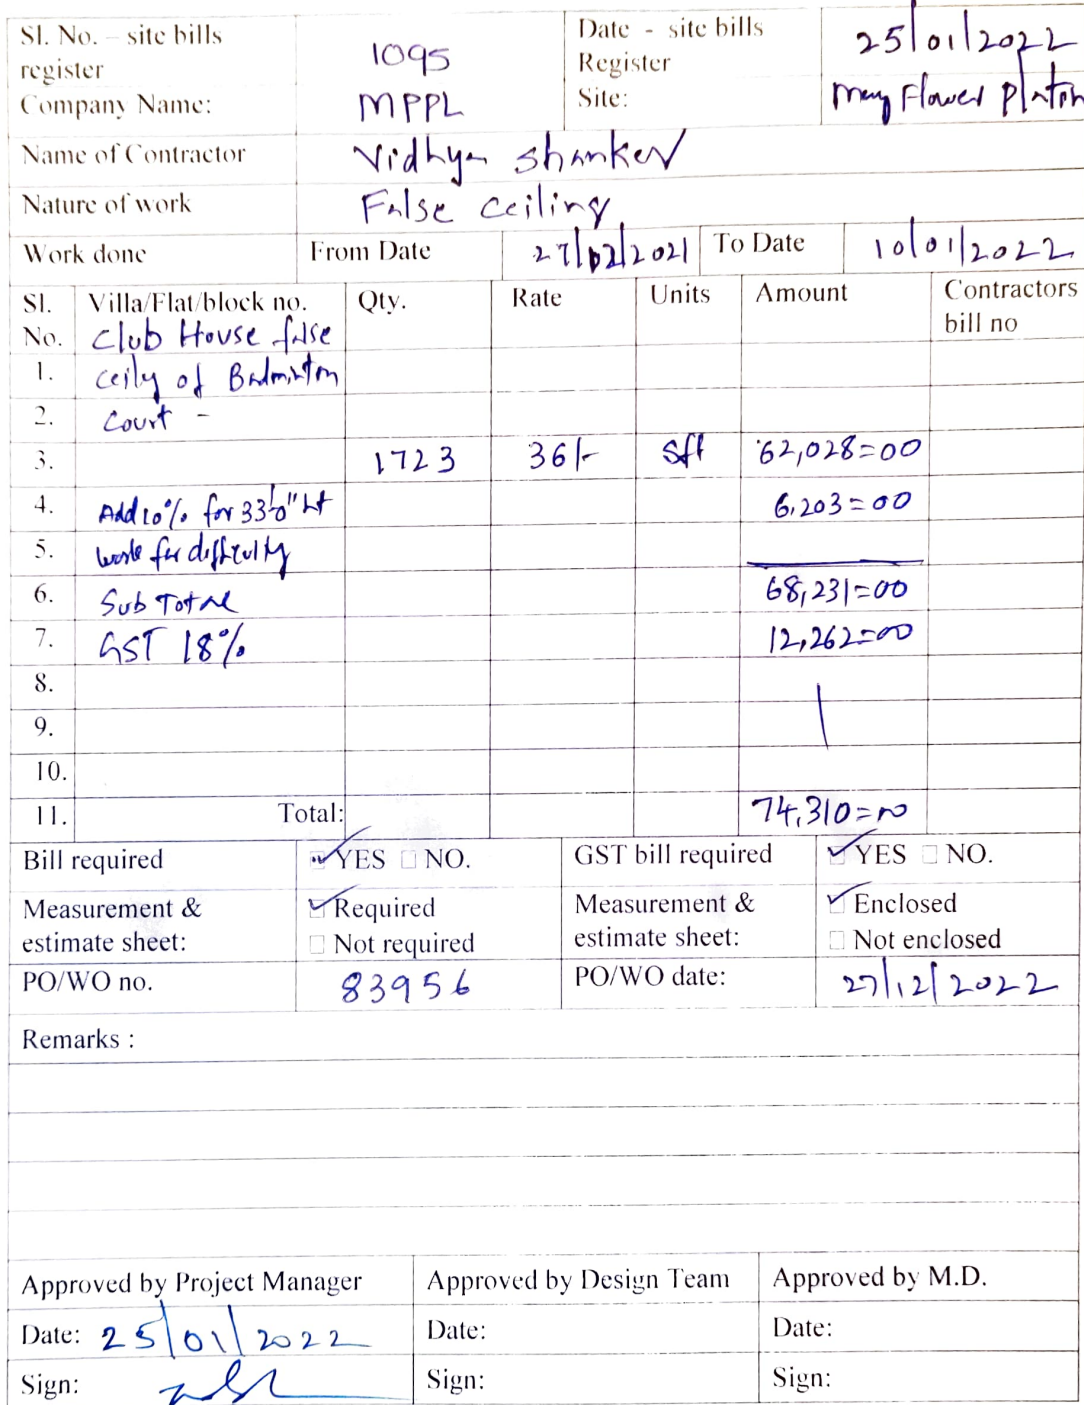 Sl. No. – site bills register 1095 Date - site bills Register 25/01/2022
Company Name: MPPL Site: May Flower Platin
Name of Contractor Vidhya Shanker
Nature of work False ceiling
Work done From Date 27/12/2021 To Date 10/01/2022
Sl. No. Villa/Flat/block no. Qty. Rate Units Amount Contractors bill no
Club House false
1. ceily of Badminton
2. Court -
3. 1723 36/- sft 62,028=00
4. Add 10% for 33'0" ht 6,203=00
5. work for difficulty
6. Sub Total 68,231=00
7. GST 18% 12,262=00
8.
9.
10.
11. Total: 74,310=00
Bill required YES NO. GST bill required YES NO.
Measurement & estimate sheet: Required Not required Measurement & estimate sheet: Enclosed Not enclosed
PO/WO no. 83956 PO/WO date: 27/12/2022
Remarks :
Approved by Project Manager Approved by Design Team Approved by M.D.
Date: 25/01/2022 Date: Date:
Sign: Sign: Sign: